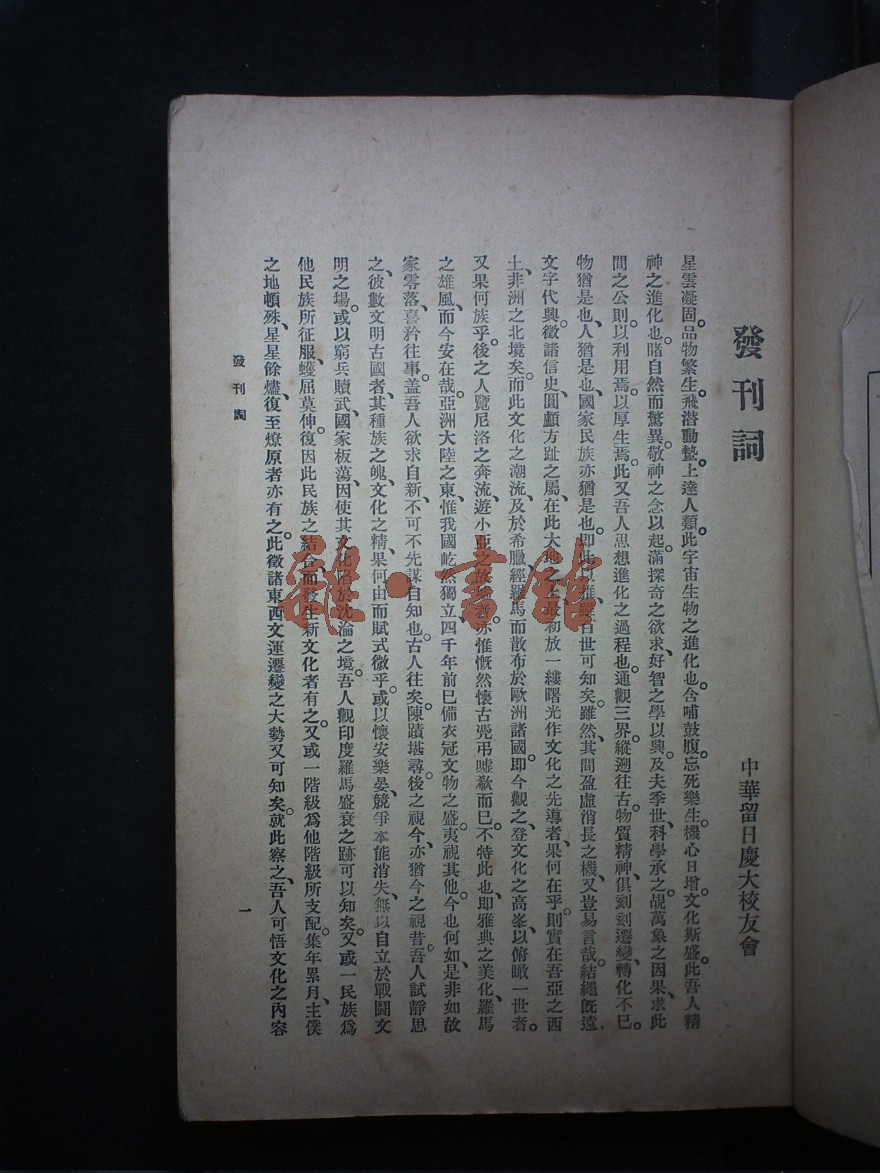 發刊詞
中華留日慶大校友會
星雲凝固。品物繁生。飛潛動蟄。上達人類。此宇宙生物之進化也。含哺鼓腹。忘死樂生。機心日增。文化斯盛。此吾人精
神之進化也。睹自然而驚異。敬神之念以起。滿探奇之欲求、好智之學以興。及夫季世、科學承之。覘萬象之因果、求此
間之公則。以利用焉。以厚生焉。此又吾人思想進化之過程也。通觀三界。縱遡往古。物質精神、俱刻刻遷變、轉化不已。
物猶是也、人猶是也、國家民族亦猶是也。即此以推、雖百世可知矣。雖然、其間盈虛消長之機、又豈易言哉。結繩旣遠、
文字代興。徵諸信史、圓顱方趾之屬、在此大地之上、最初放一縷曙光作文化之先導者、果何在乎。則實在吾亞之西
土、非洲之北境矣。而此文化之潮流、及於希臘、經羅馬而散布於歐洲諸國。即今觀之、登文化之高峯、以俯瞰一世者。
又果何族乎。後之人覽尼洛之奔流、遊小亞之故墟者、亦惟慨然懷古、凭弔噓欷而已。不特此也、即雅典之美化、羅馬
之雄風、而今安在哉。亞洲大陸之東、惟我國屹然獨立。四千年前已備衣冠文物之盛。夷視其他。今也何如、是非如故
家零落、喜矜往事。盖吾人欲求自新、不可不先謀自知也。古人往矣。陳蹟堪尋。後之視今、亦猶今之視昔。吾人試靜思
之、彼數文明古國者、其種族之魄、文化之精、果何由而賦式微乎。或以懷安樂晏、競爭本能消失、無以自立於戰鬪文
明之場。或以窮兵贖武、國家板蕩、因使其文化陷於沈淪之境。吾人觀印度羅馬盛衰之跡可以知矣。又或一民族爲
他民族所征服、蠖屈莫伸。復因此民族之結合、而發生新文化者有之。又或一階級爲他階級所支配。集年累月、主僕
之地頓殊、星星餘燼、復至燎原者亦有之。此徵諸東西文運遷變之大勢又可知矣。就此察之、吾人可悟文化之內容
發刊詞
一
雜·書館